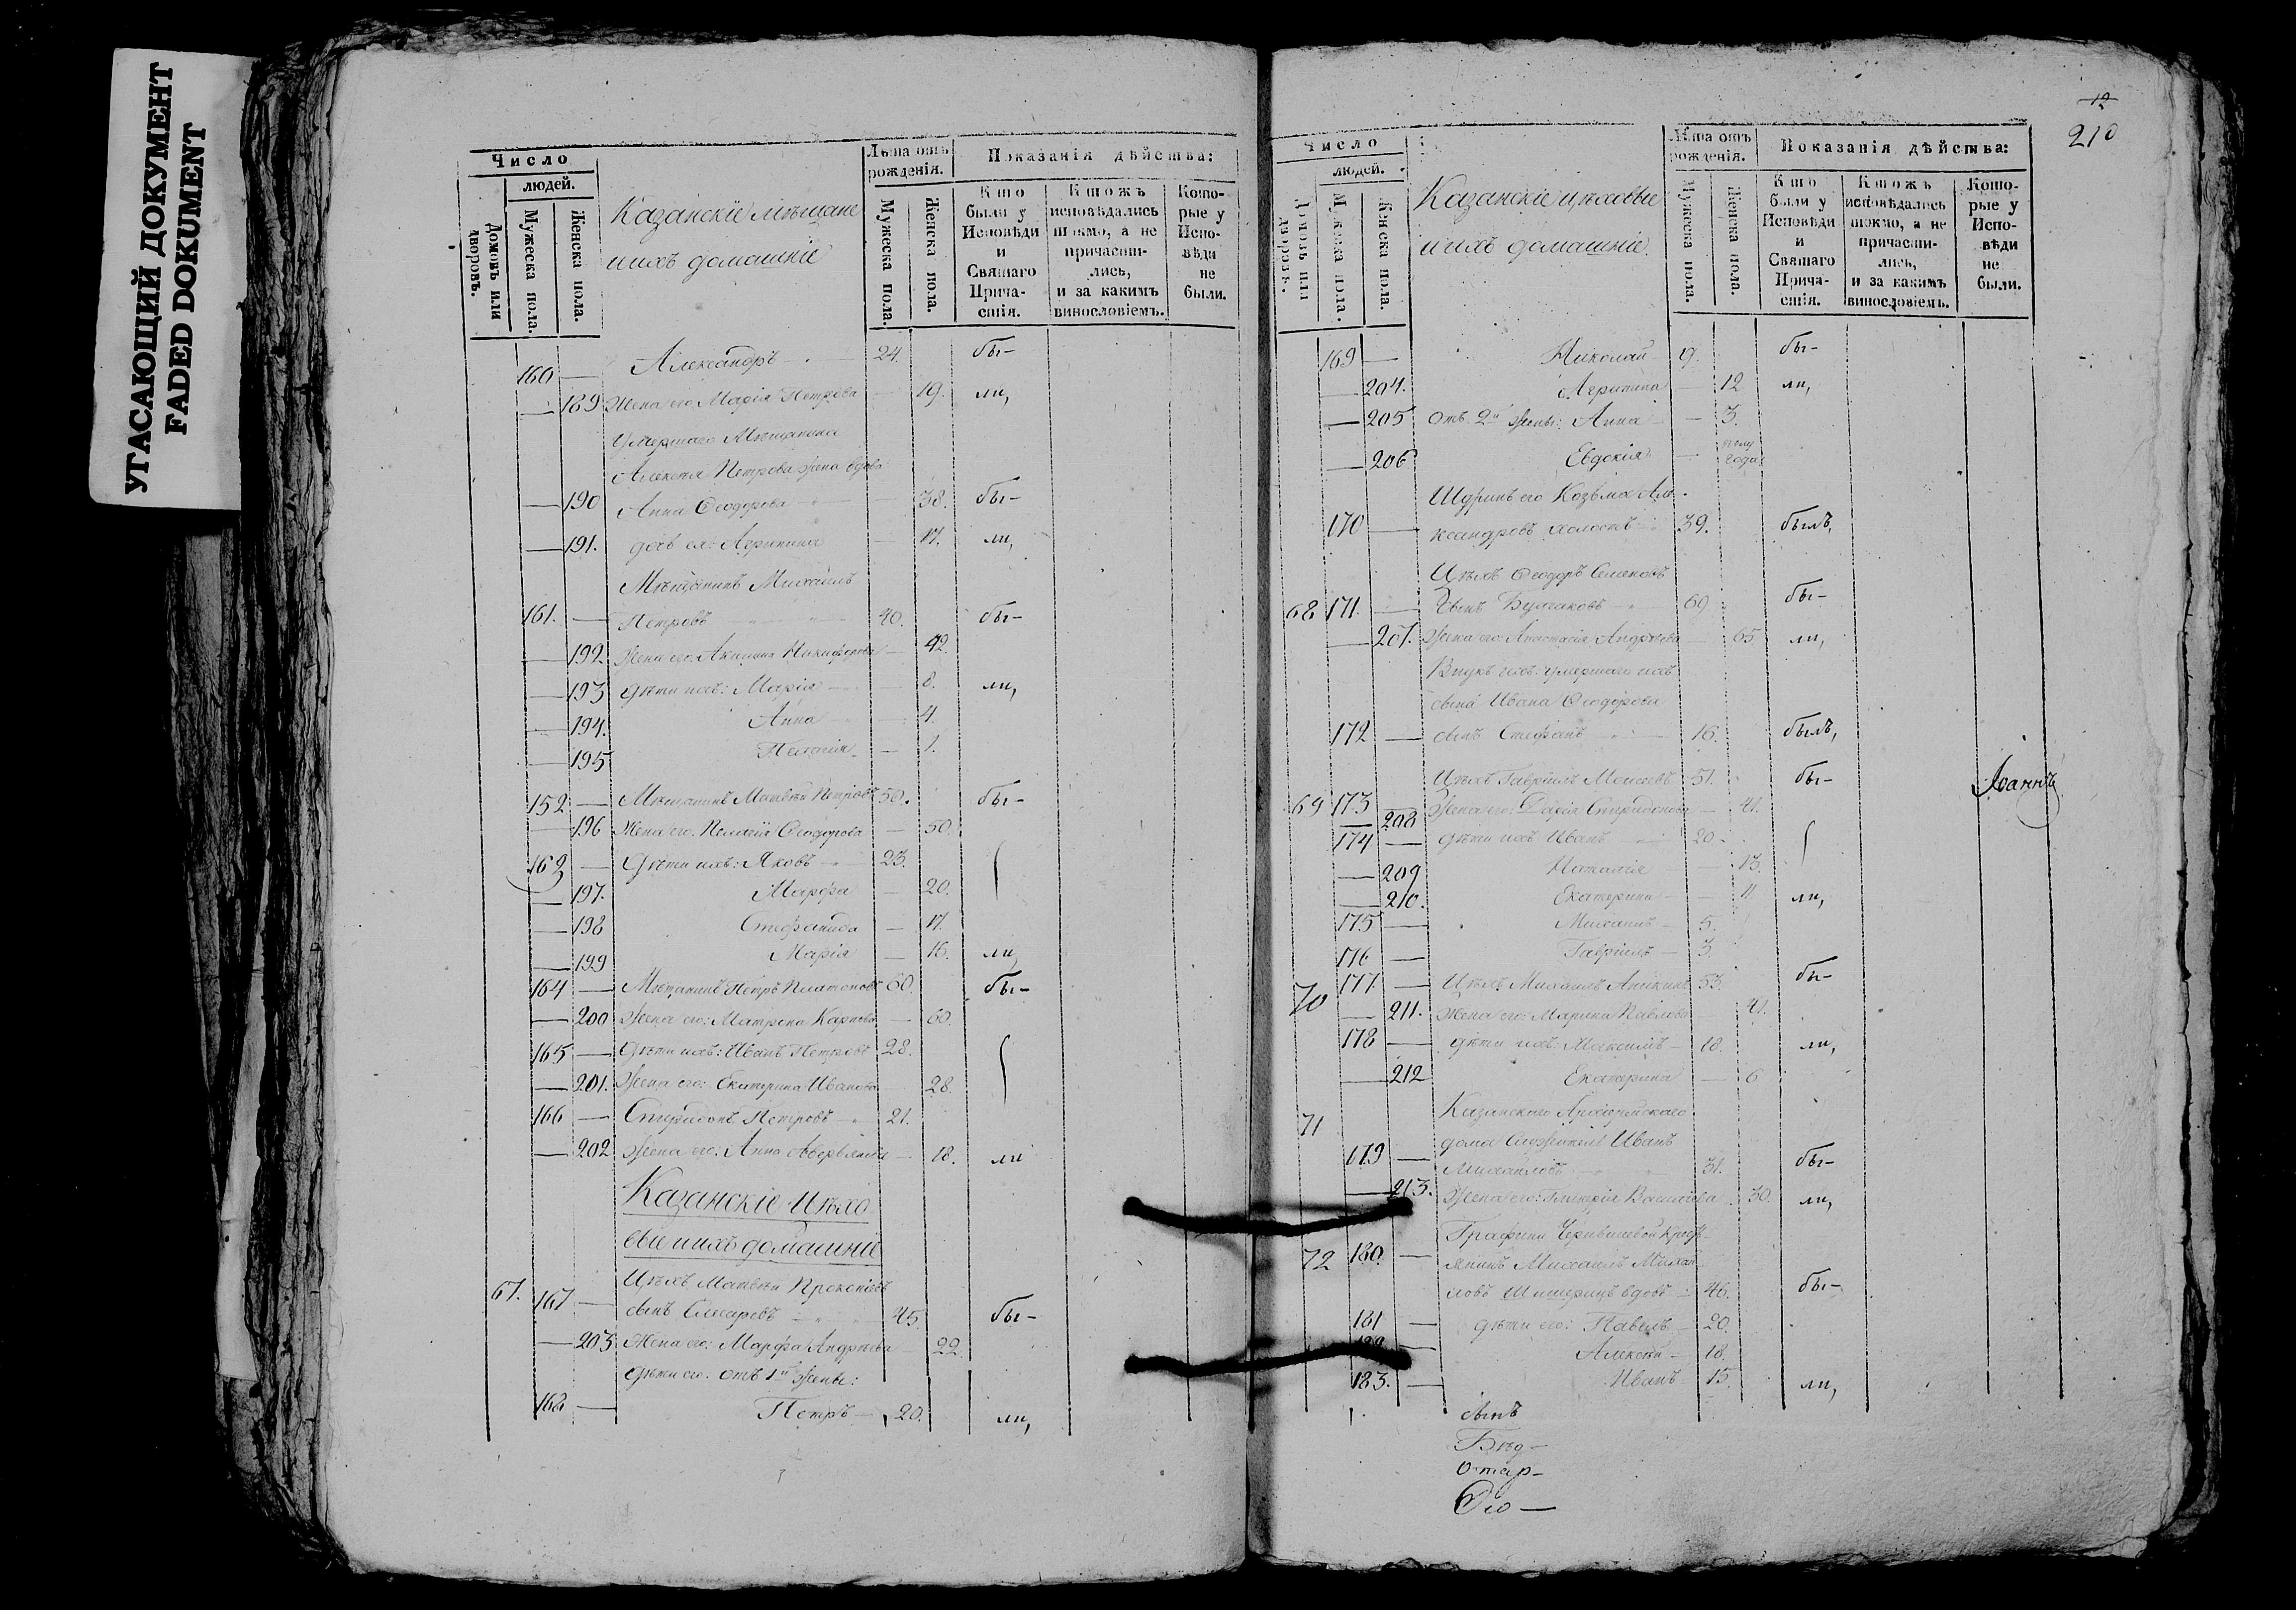 УГАСАЮЩИЙ ДОКУМЕНТ
FADED DOKUMENT
Число
людей.
Домовъ или дворовъ.
Мужеска пола.
Женска пола.
Казанскіе мѣщане
и ихъ домашніе
Лѣта отъ рожденія.
Мужеска пола.
Женска пола.
Показанія дѣйства:
Кто были у Исповѣди и Святаго Причастія.
Ктожъ исповѣдались токмо, а не причастились, и за какимъ винословіемъ.
Которые у Исповѣди не были.
160 — Александръ — 24. бы-
— 189 Жена его Марія Петрова — 19. ли,
Умершаго Мѣщанина
Алексѣя Петрова жена вдова
— 190 Анна Ѳеодорова — 38. бы-
— 191. дочь ея: Агрипина — 17. ли,
Мѣщанинъ Михаилъ
161. — Петровъ 40. бы-
— 192 Жена его: Акилина Никифорова — 42.
— 193 дѣти ихъ: Марія — 8. ли,
— 194. Анна — 4.
— 195 Пелагія — 1.
152 — Мѣщанинъ Матвѣй Петровъ 50. бы-
— 196 Жена его. Пелагія Ѳеодорова — 50.
163 — Дѣти ихъ: Яковъ — 23.
— 197. Марфа — 20.
— 198 Стефанида — 17.
— 199 Марія — 16. ли,
164 — Мѣщанинъ Петръ Платоновъ 60. бы-
— 200 Жена его: Матрена Карпова — 60.
165 — Дѣти ихъ: Иванъ Петровъ 28.
— 201. Жена его: Екатерина Иванова 28.
166 — Спиридонъ Петровъ — 21.
— 202 Жена его: Анна Аверьянова — 18. ли
Казанскіе Цѣхо
вые и ихъ домашніе
67. 167 — Цѣхъ Матвѣй Прокопіевъ
сынъ Слесаревъ — 45. бы-
— 203 Жена его: Марфа Андреева — 22.
Дѣти его. отъ 1й жены:
168 — Петръ — 20. ли,
12
210
Число
людей.
Домовъ или дворовъ.
Мужеска пола.
Женска пола.
Казанскіе цѣховые
и ихъ домашніе.
Лѣта отъ рожденія.
Мужеска пола.
Женска пола.
Показанія дѣйства:
Кто были у Исповѣди и Святаго Причастія.
Ктожъ исповѣдались токмо, а не причастились, и за какимъ винословіемъ.
Которые у Исповѣди не были.
169 — Николай — 19. бы-
— 204. Агрипина — 12 ли,
— 205 Отъ 2й жены: Анна — 3.
— 206 Евдокія — полу года
Шуринъ его Козьма Але-
170 — ксандровъ холостъ — 39. былъ,
Цѣхъ Ѳеодоръ Семеновъ
68 171. — сынъ Булгаковъ — 69. бы-
— 207. Жена его: Анастасія Андреева — 65 ли,
Внукъ ихъ. умершаго ихъ
сына Ивана Ѳеодорова
172 — сынъ Стефанъ — 16. былъ,
Цѣхъ Гавріилъ Моисеевъ 51. бы-
69 173. — 208 Жена его: Дарія Спиридонова — 41.
174 — дѣти ихъ Иванъ — 20.
— 209 Наталія — 13.
— 210. Екатерина — 11 ли,
175 — Михаилъ — 5.
176 — Гавріилъ — 3.
70 177 — Цѣхъ Михаилъ Аникинъ 53. бы-
— 211. Жена его: Марина Павлова 41.
178 — дѣти ихъ: Максимъ — 18. ли,
— 212 Екатерина — 6
Іоаннъ
71 Казанскаго Архіерейскаго
дома Служитель Иванъ
179 — Михаиловъ — 31. бы-
— 213. Жена его: Гликерія Васильева 30. ли,
Графини Чернышевой крестья-
72 180. — нинъ Михаилъ Михаи
ловъ вдовъ — 46. бы-
181 — дѣти его: Павелъ — 20.
182 — Алексѣй — 18.
183. — Иванъ — 15. ли,
сынъ